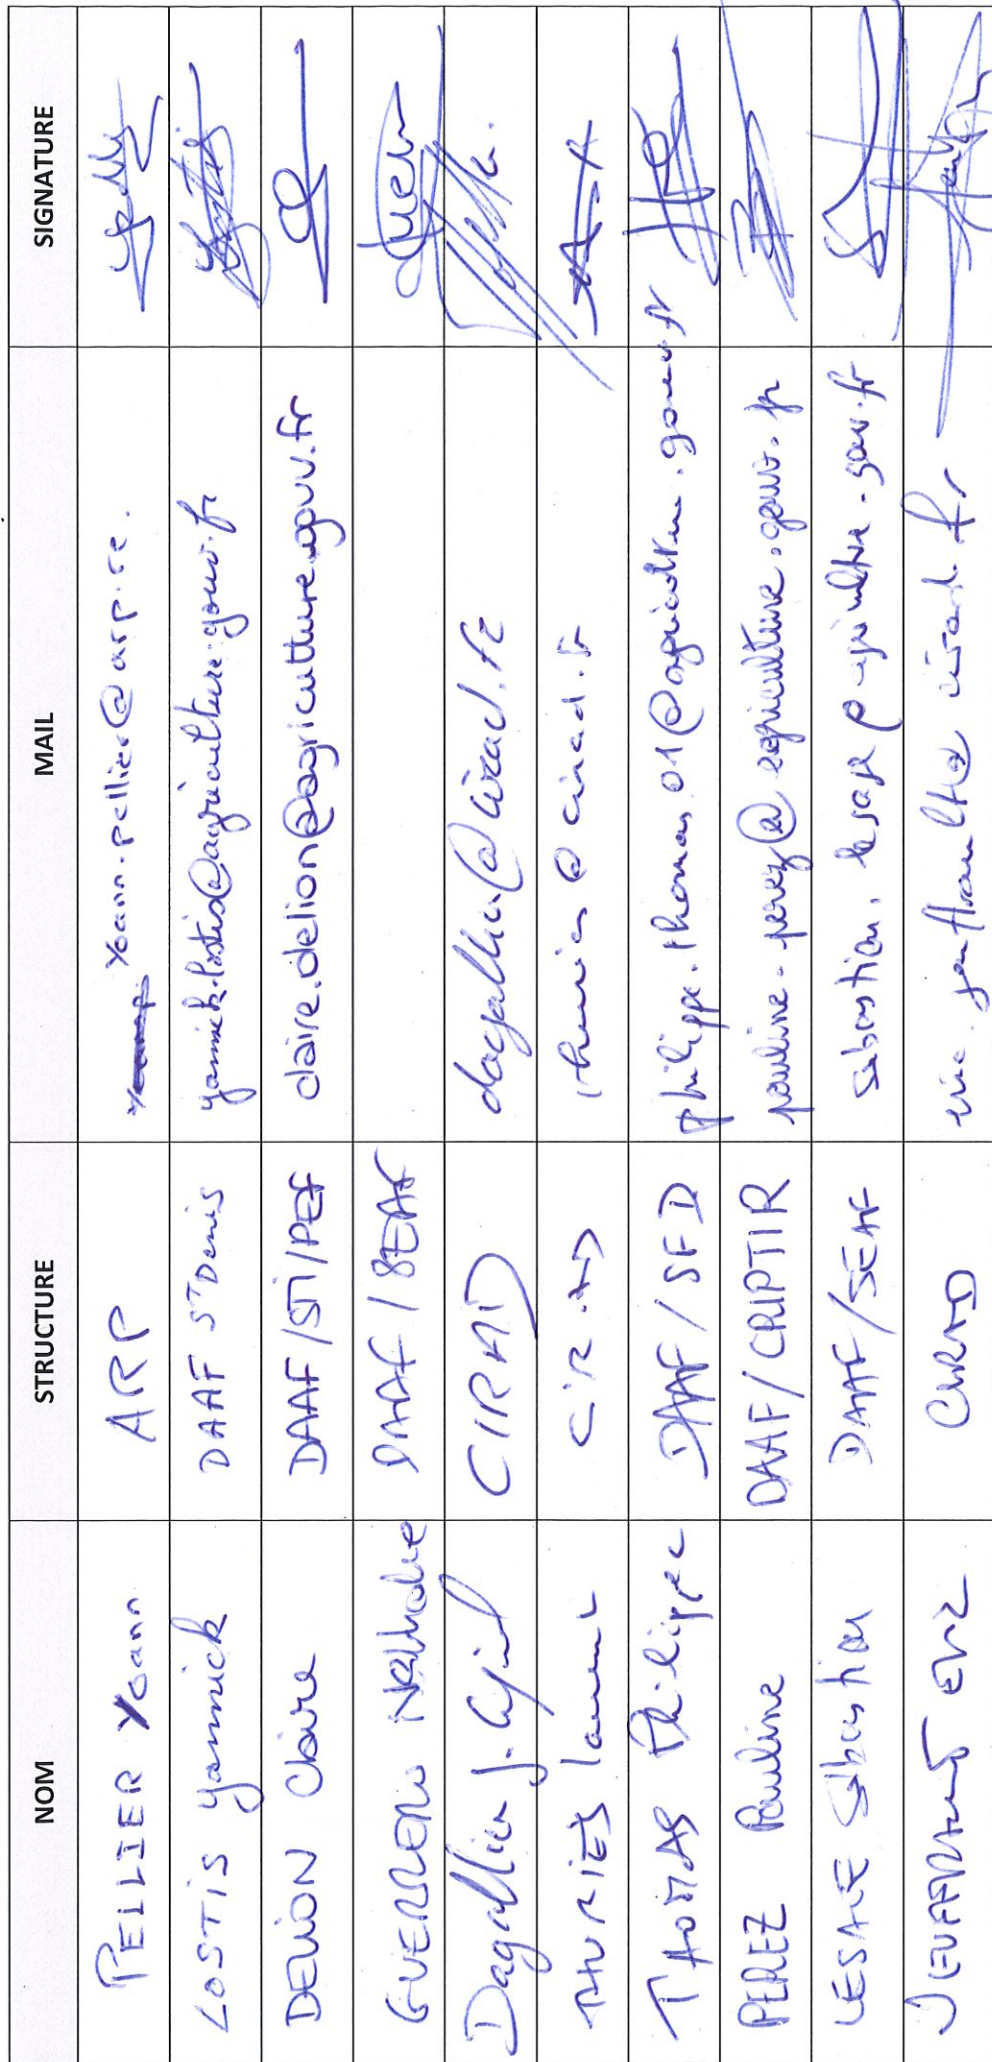 NOM STRUCTURE MAIL SIGNATURE
PELLIER Yoann ARP yoann.pellier@arp.re.
LOSTIS Yannick DAAF St Denis yannick.lostis@agriculture.gouv.fr
DELION Claire DAAF/STI/PEF claire.delion@agriculture.gouv.fr
GUERRERO Nathalie DAAF/SEAF
Dagallier J. Cyril CIRAD dagallier@cirad.fr
THURIES Laurent CIRAD thuries@cirad.fr
THOMAS Philippe DAAF/SFD philippe.thomas.01@agriculture.gouv.fr
PEREZ Pauline DAAF/CRIPTIR pauline.perez@agriculture.gouv.fr
LESAGE Sébastien DAAF/SEAF sebastien.lesage@agriculture.gouv.fr
JEUFFRAULT Eric CIRAD eric.jeuffrault@cirad.fr